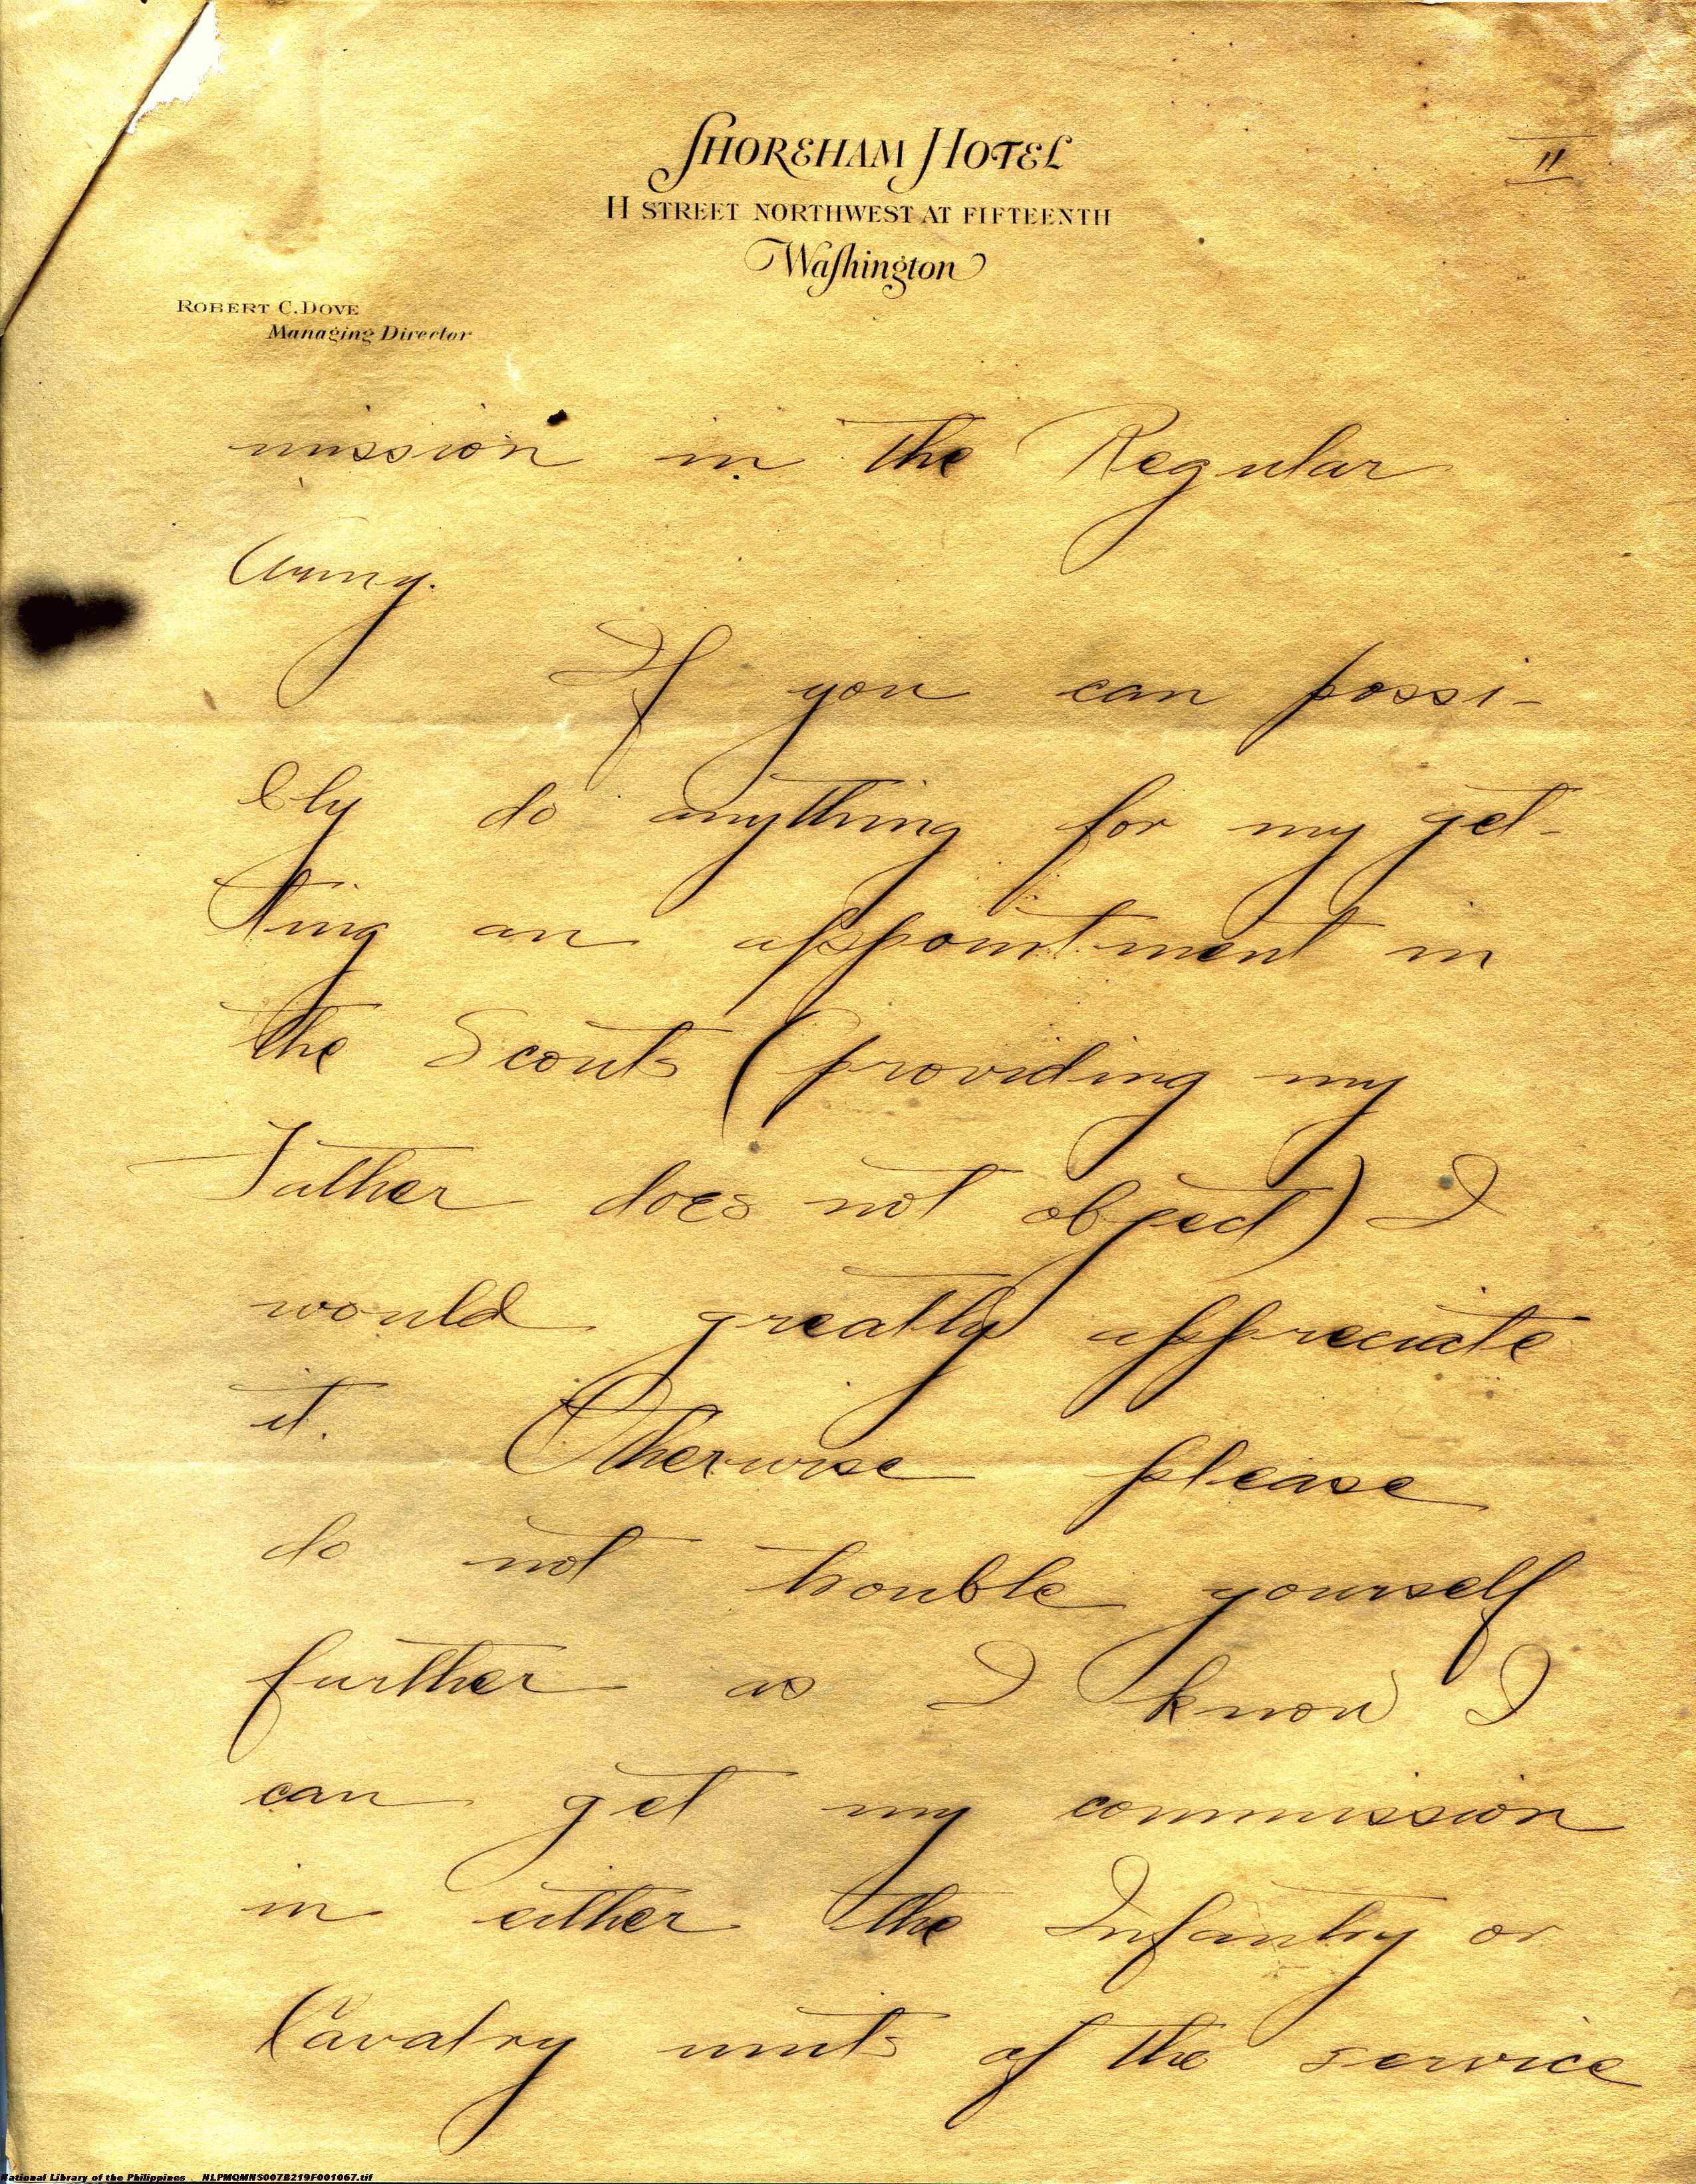 SHOREHAM HOTEL
H STREET NORTHWEST AT FIFTEENTH
Washington
II
ROBERT C. DOVE
Managing Director
mission in the Regular
Army.
If you can possi-
bly do anything for my get-
ting an appointment in
the Scouts (providing my
Father does not object) I
would greatly appreciate
it. Otherwise please
do not trouble yourself
further as I know I
can get my commission
in either the Infantry or
Cavalry units of the service
National Library of the Philippines NLPMQMNS007B219F001067.tif